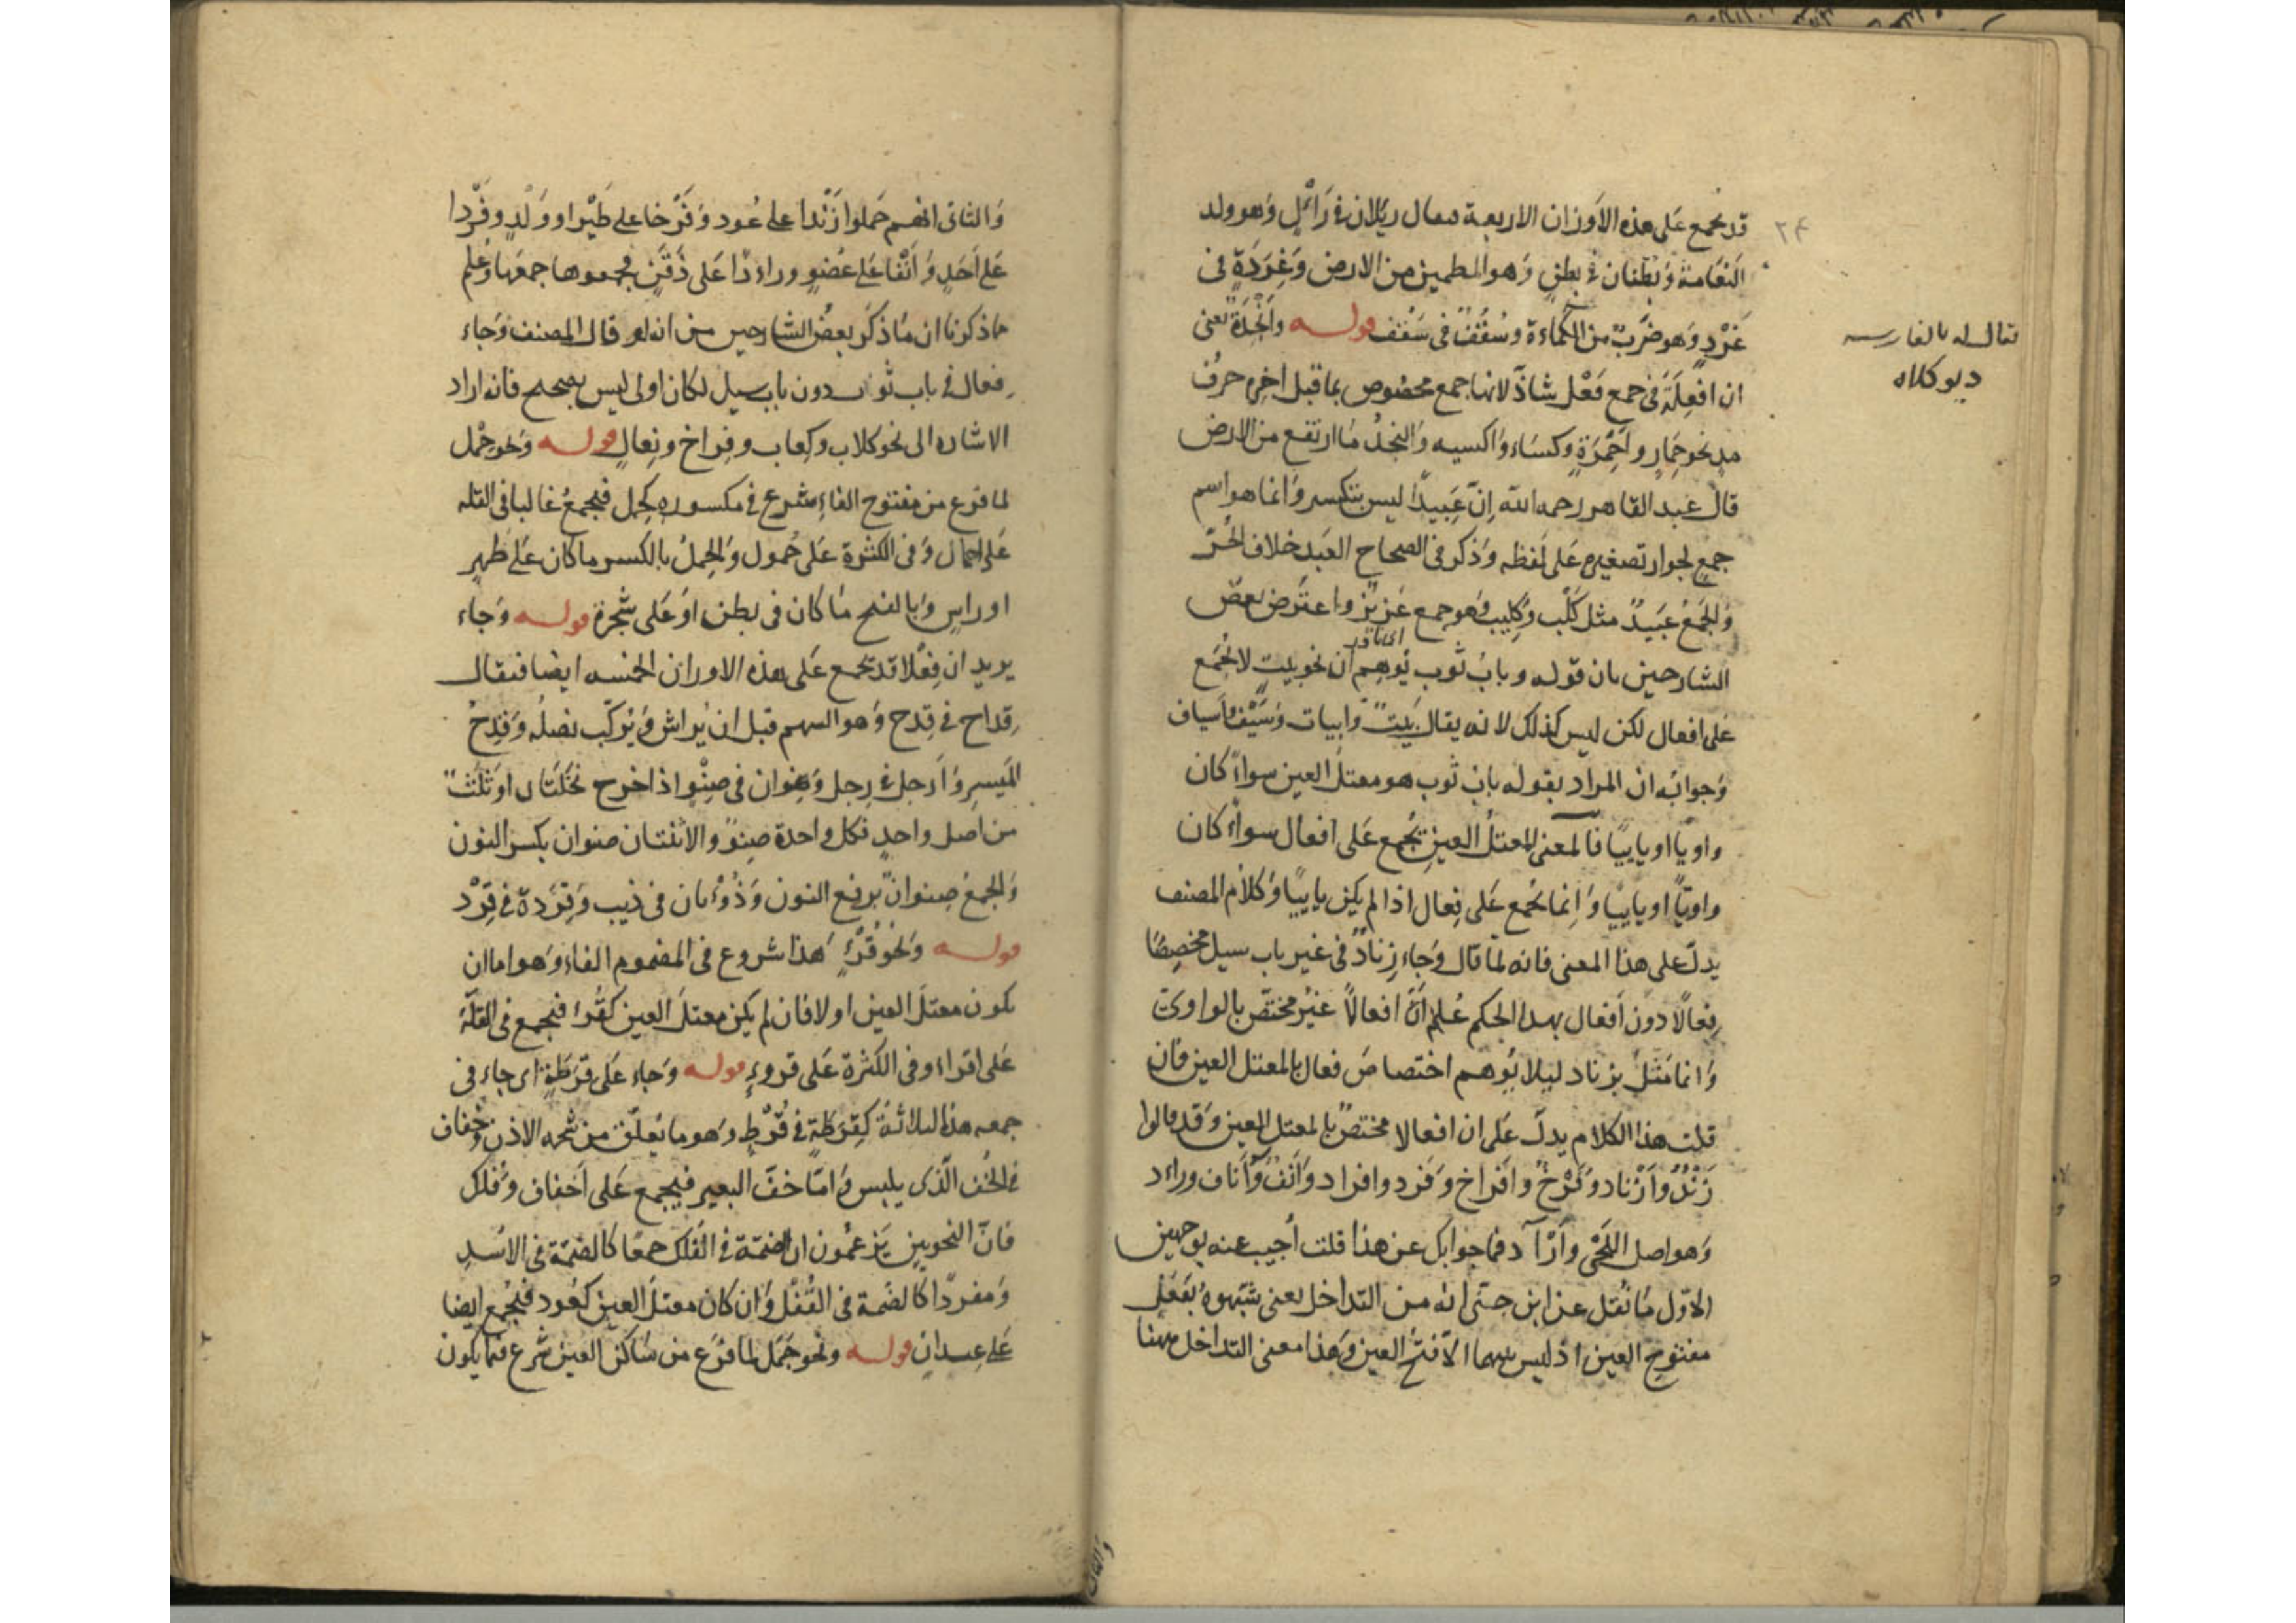 قد يجمع على هذه الاوزان الاربعة يقال ريلان في رائل وهو ولد
النعامة وبطنان في بطن وهو المطمين من الارض وغردة في
غرد وهو ضرب من الكماءة وسقف في سقف قوله وانجدة يعنى
ان افعلة في جمع فعل شاذ لانها جمع مخصوص بما قبل اخره حرف
مد نحو حمار واحمرة وكساء واكسيه والنجد ما ارتفع من الارض
قال عبد القاهر رحمه الله ان عبيدا ليس بتكسير وانما هو اسم
جمع لجواز تصغيره على لفظه وذكر في الصحاح العبد خلاف الحر
والجمع عبيد مثل كلب وكليب وهو جمع عزيز واعترض بعض
اى نادر
الشارحين بان قوله وباب ثوب يوهم ان نحو بيت لا يجمع
على افعال لكن ليس كذلك لانه يقال بيت وابيات وسيف واسياف
وجوابه ان المراد بقوله باب ثوب هو معتل العين سواء كان
واويا او يائيا فالمعنى المعتل العين يجمع على افعال سواء كان
واويا او يائيا وانما يجمع على فعال اذا لم يكن يائيا وكلام المصنف
يدل على هذا المعنى فانه لما قال وجاء زناد في غير باب سيل مخصصا
فعالا دون افعال بهذا الحكم علم ان افعالا غير مختص بالواوى
وانما مثل بزناد ليلا يوهم اختصاص فعال بالمعتل العين فان
قلت هذا الكلام يدل على ان افعالا مختص بالمعتل العين وقد قالوا
زند وازناد وفرخ وافراخ وفرد وافراد وانف وآناف وراءد
وهو اصل اللحى وأرآد فما جوابك عن هذا قلت اجيب عنه بوجهين
الاول ما نقل عن ابن جنى انه من التداخل يعنى شبهوه بفعل
مفتوح العين اذ ليس بينهما الا فتح العين وهذا معنى التداخل ههنا
يقال له بالفارسيه
ديو كلاه
۲۴
والثانى
والثانى انهم حملوا زندا على عود وفرخا على طير او ولد وفردا
على احد وانفا على عضو وراءدا على ذقن فجمعوها جمعها وعلم
مما ذكرنا ان ما ذكر بعض الشارحين من انه لو قال المصنف وجاء
فعال في باب ثوب دون باب سيل لكان اولى ليس بصحيح فانه اراد
الاشاره الى نحو كلاب وكعاب وفراخ ونعال قوله ونحو حمل
لما فرع من مفتوح الفاء شرع في مكسوره كحمل فيجمع غالبا فى القله
على احمال وفى الكثرة على حمول والحمل بالكسر ما كان على ظهر
او راس وبالفتح ما كان فى بطن او على شجرة قوله وجاء
يريد ان فعلا قد يجمع على هذه الاوزان الخمسه ايضا فيقال
قداح في قدح وهو السهم قبل ان يراش ويركب نصله وقدح
الميسر وارجل في رجل وصنوان فى صنو اذا خرج نخلتان او ثلث
من اصل واحد فكل واحدة صنو والاثنتان صنوان بكسر النون
والجمع صنوان برفع النون وذؤبان فى ذيب وقردة في قرد
قوله ونحو قرء هذا شروع فى المضموم الفاء وهو اما ان
يكون معتل العين اولا فان لم يكن معتل العين كقرء فيجمع فى القلة
على اقراء وفى الكثرة على قروء قوله وجاء على قرطة اى جاء فى
جمعه هذه الثلاثة كقرطة في قرط وهو ما يعلق من شحمه الاذن وخفاف
في الخف الذى يلبس واما خف البعير فيجمع على اخفاف وفلك
فان النحويين يزعمون ان الضمة في الفلك جمعا كالضمة فى الاسد
ومفردا كالضمة فى القفل وان كان معتل العين كعود فيجمع ايضا
على عيدان قوله ونحو جمل لما فرع من ساكن العين شرع فيما يكون